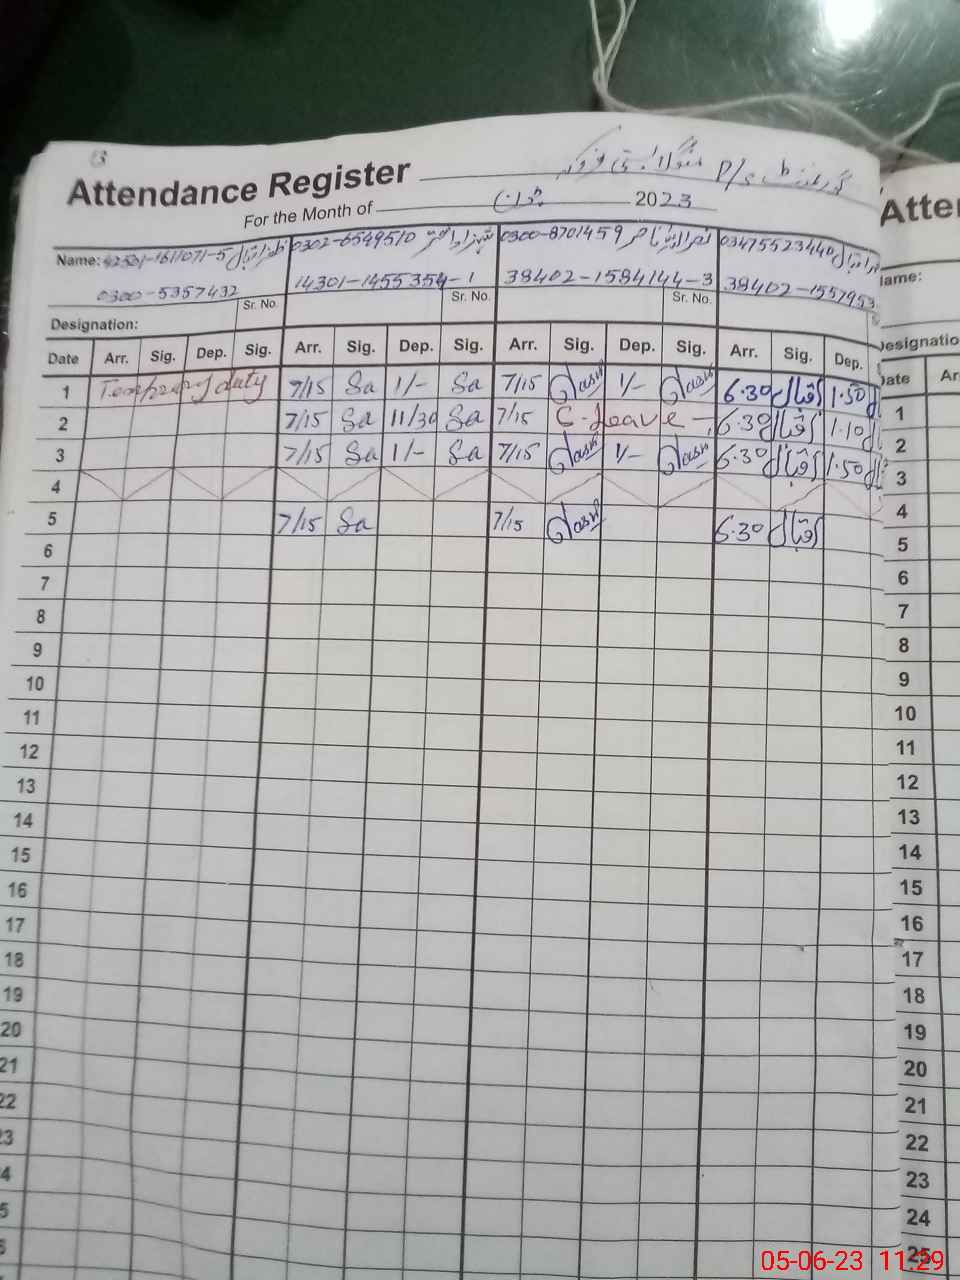 Attendance Register P/S
For the Month of جون 2023
Name: 42501-1611071-5 0302-6549510 0300-8701459 03475523440
0300-5357432 14301-1455354-1 38402-1584144-3 38402-1557953
Sr. No. Sr. No. Sr. No.
Designation:
Date Arr. Sig. Dep. Sig. Arr. Sig. Dep. Sig. Arr. Sig. Dep. Sig. Arr. Sig. Dep.
1 Temprary duty 7/15 Sa 1/- Sa 7/15 1/- 6.30 اقبال 1.50
2 7/15 Sa 11/30 Sa 7/15 C. Leave 6.30 اقبال 1.10
3 7/15 Sa 1/- Sa 7/15 1/- 6.30 اقبال 1.50
4
5 7/15 Sa 7/15 6.30 اقبال
6
7
8
9
10
11
12
13
14
15
16
17
18
19
20
21
22
23
4
5
6
Atte
ame:
esignatio
ate Ar
1
2
3
4
5
6
7
8
9
10
11
12
13
14
15
16
17
18
19
20
21
22
23
24
25
05-06-23 11:29